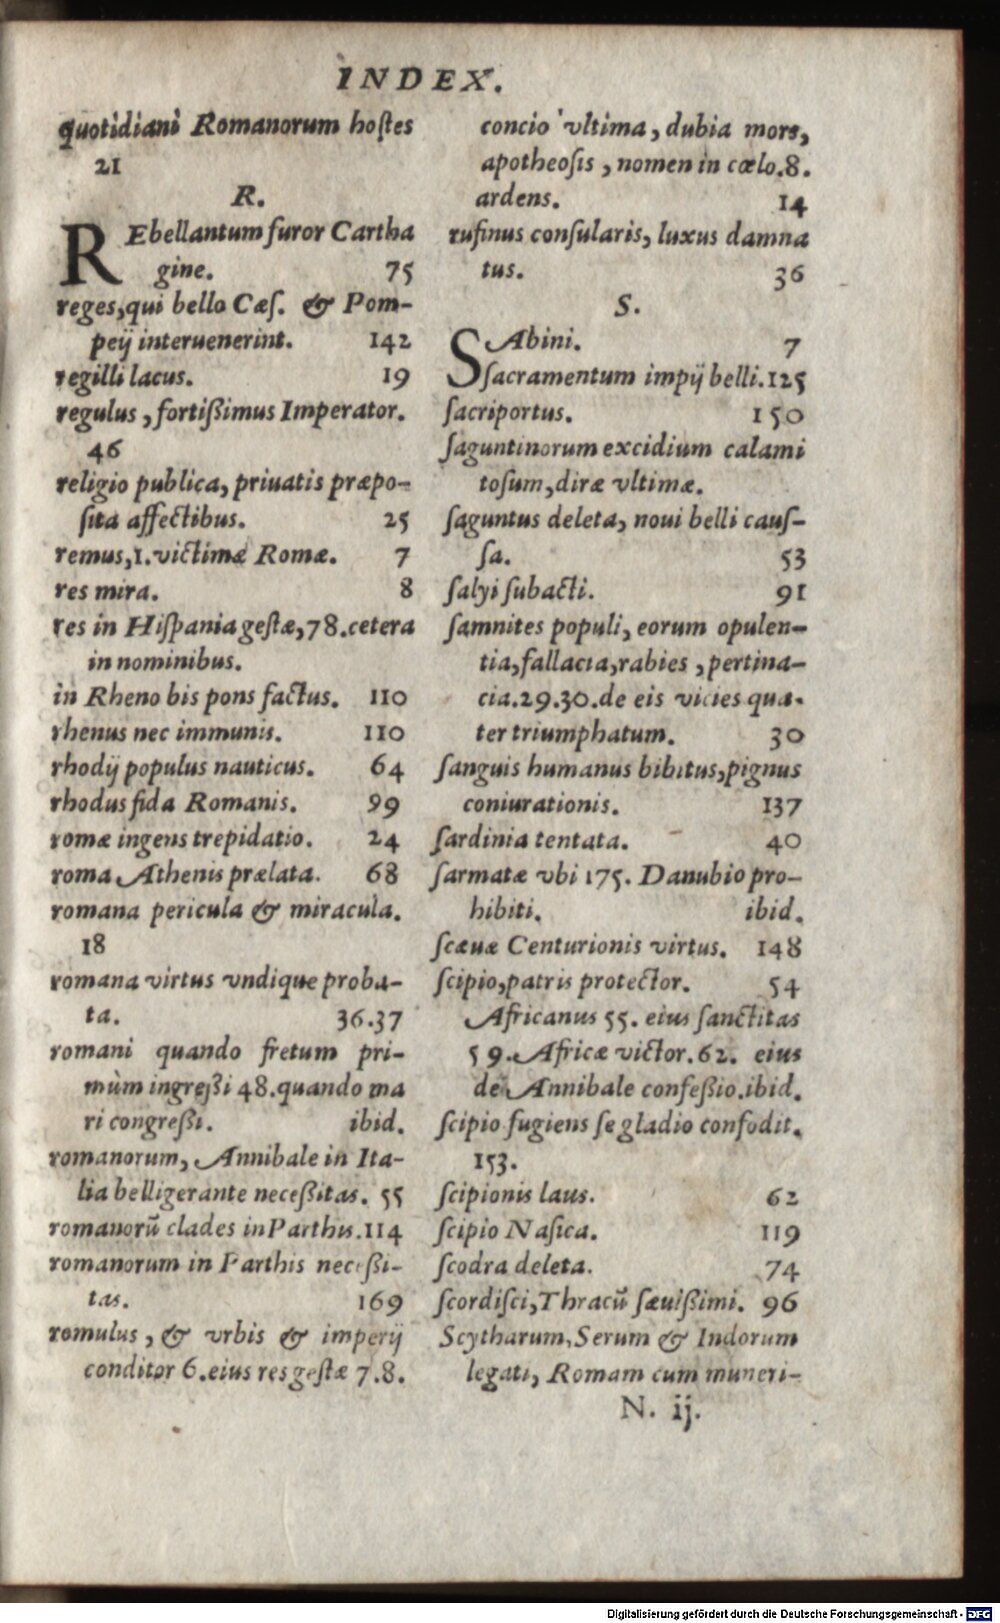 INDEX.
quotidiani Romanorum hoſtes
21
R.
REbellantum furor Cartha
gine. 75
reges, qui bello Cæſ. & Pom-
peij interuenerint. 142
regilli lacus. 19
regulus, fortißimus Imperator.
46
religio publica, priuatis præpo-
ſita affectibus. 25
remus, 1. victimæ Romæ. 7
res mira. 8
res in Hiſpania geſtæ, 78. cetera
in nominibus.
in Rheno bis pons factus. 110
rhenus nec immunis. 110
rhodij populus nauticus. 64
rhodus fida Romanis. 99
romæ ingens trepidatio. 24
roma Athenis prælata. 68
romana pericula & miracula.
18
romana virtus vndique proba-
ta. 36.37
romani quando fretum pri-
mùm ingreßi 48. quando ma
ri congreßi. ibid.
romanorum, Annibale in Ita-
lia belligerante neceßitas. 55
romanorũ clades in Parthis. 114
romanorum in Parthis neceßi-
tas. 169
romulus, & vrbis & imperij
conditor 6. eius res geſtæ 7.8.
concio vltima, dubia mors,
apotheoſis, nomen in cœlo. 8.
ardens. 14
rufinus conſularis, luxus damna
tus. 36
S.
SAbini. 7
ſacramentum impij belli. 125
ſacriportus. 150
ſaguntinorum excidium calami
toſum, diræ vltimæ.
ſaguntus deleta, noui belli cauſ-
ſa. 53
ſalyi ſubacti. 91
ſamnites populi, eorum opulen-
tia, fallacia, rabies, pertina-
cia. 29.30. de eis vicies qua-
ter triumphatum. 30
ſanguis humanus bibitus, pignus
coniurationis. 137
ſardinia tentata. 40
ſarmatæ vbi 175. Danubio pro-
hibiti. ibid.
ſcæuæ Centurionis virtus. 148
ſcipio, patris protector. 54
Africanus 55. eius ſanctitas
59. Africæ victor. 62. eius
de Annibale confeßio. ibid.
ſcipio fugiens ſe gladio confodit.
153.
ſcipionis laus. 62
ſcipio Naſica. 119
ſcodra deleta. 74
ſcordiſci, Thracũ ſæuißimi. 96
Scytharum, Serum & Indorum
legati, Romam cum muneri-
N. ij.
Digitalisierung gefördert durch die Deutsche Forschungsgemeinschaft - DFG